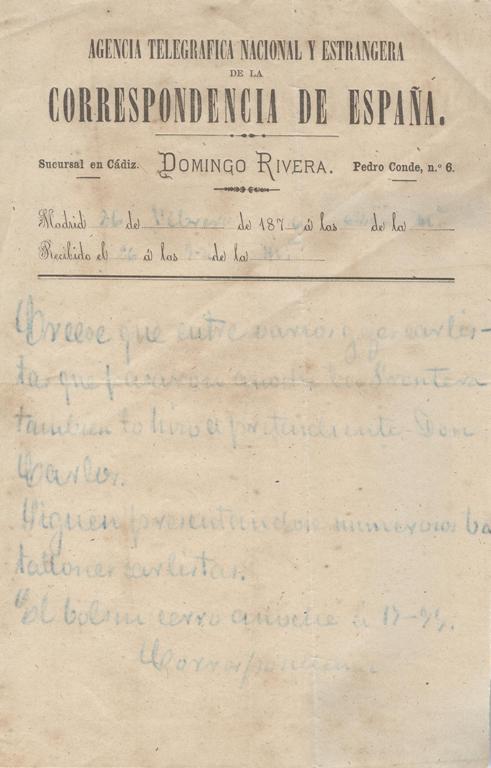 AGENCIA TELEGRAFICA NACIONAL Y ESTRANGERA
DE LA
CORRESPONDENCIA DE ESPAÑA.
Sucursal en Cádiz. DOMINGO RIVERA. Pedro Conde, n.º 6.
Madrid 26 de Febrero de 187 á las de la
Recibido el 26 á las de la
Creese que entre varios gefes carlis-
tas que pasaron anoche la frontera
tambien lo hizo el pretendiente Don
Carlos.
Siguen presentandose numerosos ba
tallones carlistas.
El bolsin cerro anoche á
Correspondencia